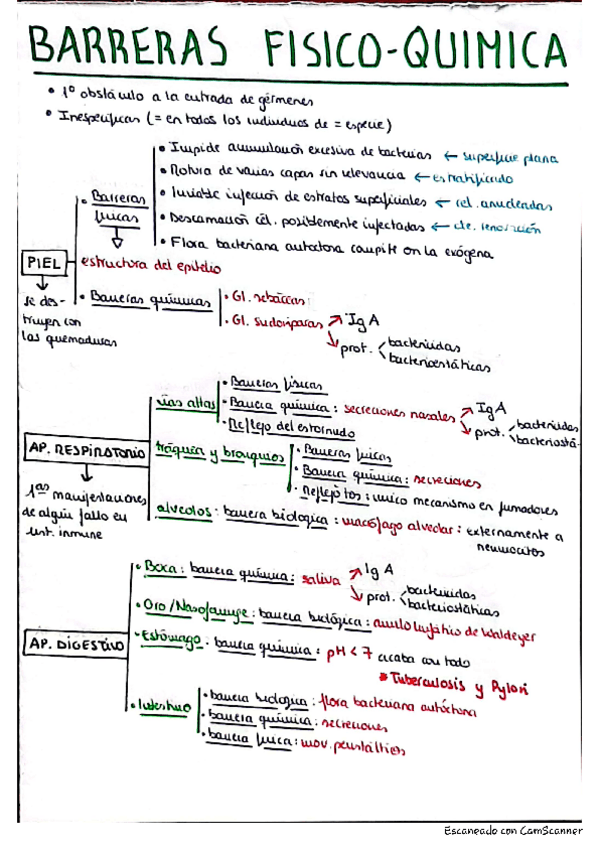 BARRERAS FISICO-QUIMICA
• 1º obstáculo a la entrada de gérmenes
• Inespecíficas (= en todos los individuos de = especie)
• Impide acumulación excesiva de bacterias ← superficie plana
• Rotura de varias capas sin relevancia ← estratificado
• Inviable infección de estratos superficiales ← cél. anucleadas
• Descamación cél. posiblemente infectadas ← cte. renovación
• Flora bacteriana autóctona compite con la exógena
• Barreras físicas
↓
estructura del epitelio
PIEL
↓
se destruyen con las quemaduras
• Barreras químicas
• Gl. sebáceas
• Gl. sudoríparas
IgA
prot.
bactericidas
bacterioestáticas
AP. RESPIRATORIO
↓
1ªˢ manifestaciones
de algún fallo en
sist. inmune
vías altas
• Barreras físicas
• Barrera química: secreciones nasales
IgA
prot.
bactericidas
bacteriostá-
• Reflejo del estornudo
tráquea y bronquios
• Barreras físicas
• Barrera química: secreciones
• Reflejo tos: único mecanismo en fumadores
alveolos: barrera biológica: macrófago alveolar: externamente a
neumocitos
AP. DIGESTIVO
• Boca: barrera química: saliva
IgA
prot.
bactericidas
bacteriostáticas
• Oro/Nasofaringe: barrera biológica: anillo linfático de Waldeyer
• Estómago: barrera química: pH < 7 acaba con todo
* Tuberculosis y Pylori
• Intestino
• barrera biológica: flora bacteriana autóctona
• barrera química: secreciones
• barrera física: mov. peristálticos
Escaneado con CamScanner